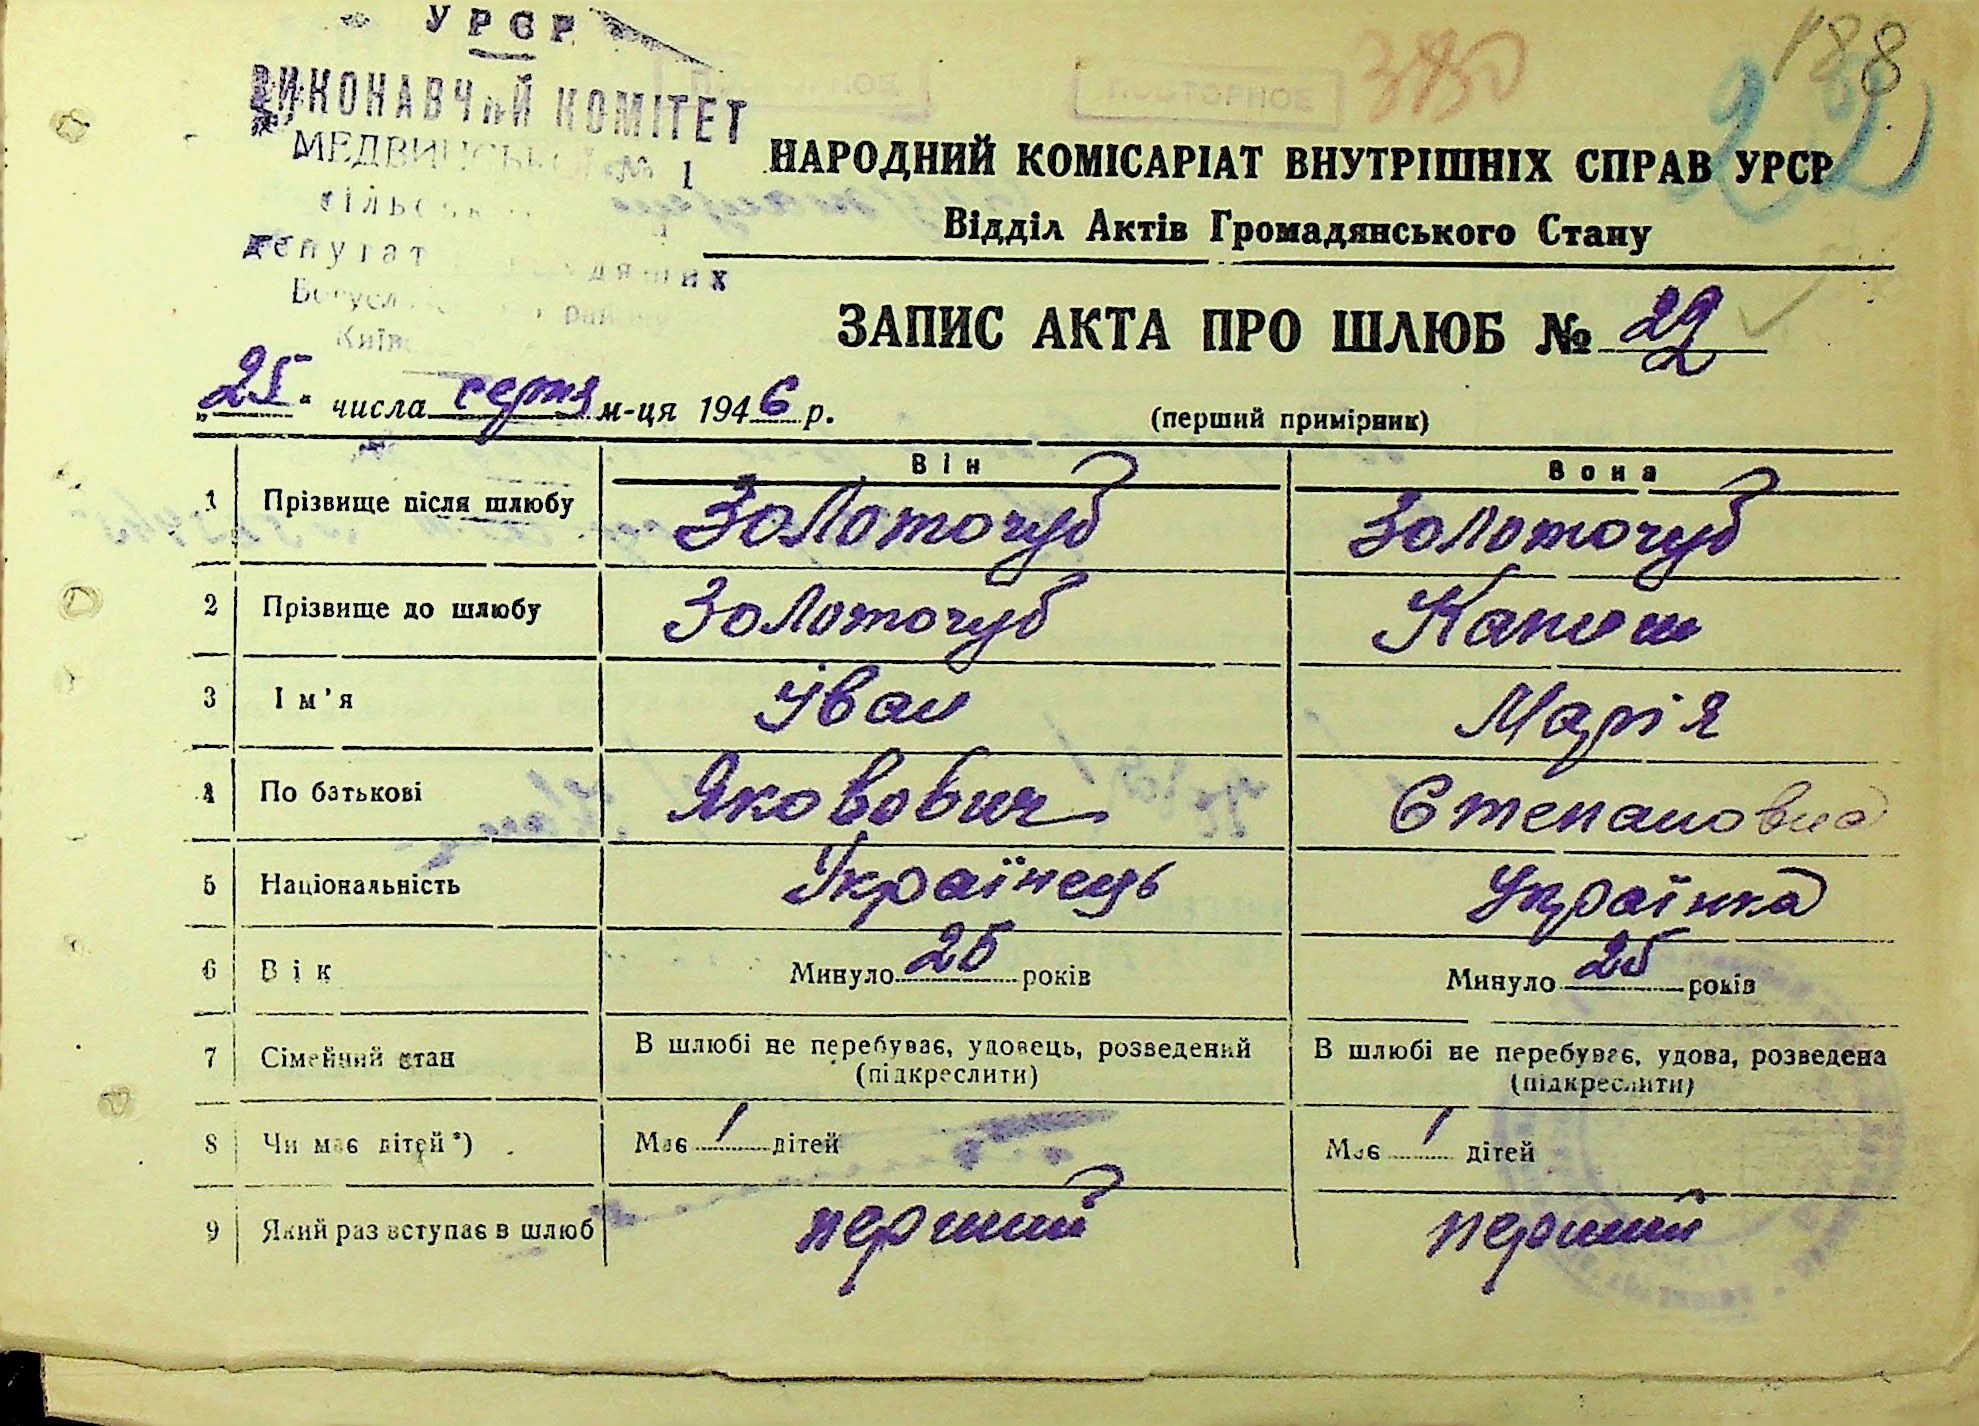 УРСР
ВИКОНАВЧИЙ КОМІТЕТ
МЕДВИНСЬКОЇ № 1
сільс
депутат дящих
Київ
380
188
22
НАРОДНИЙ КОМІСАРІАТ ВНУТРІШНІХ СПРАВ УРСР
Відділ Актів Громадянського Стану
ЗАПИС АКТА ПРО ШЛЮБ № 22
„25" числа серпня м-ця 1946 р.
(перший примірник)
Він Вона
1 Прізвище після шлюбу Золоточуб Золоточуб
2 Прізвище до шлюбу Золоточуб
3 Ім'я Іван Марія
4 По батькові Якович Степановна
5 Національність Українець Українка
6 Вік Минуло 25 років Минуло 25 років
7 Сімейний стан В шлюбі не перебуває, удовець, розведений (підкреслити) В шлюбі не перебуває, удова, розведена (підкреслити)
8 Чи має дітей*) Має 1 дітей Має 1 дітей
9 Який раз вступає в шлюб перший перший